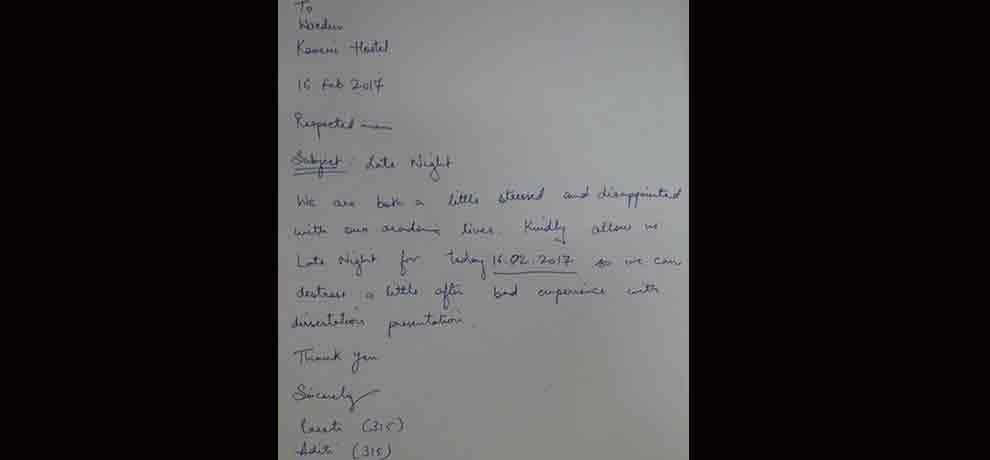 To
Warden
Kaveri Hostel
16 Feb 2017
Respected mam
Subject: Late Night
We are both a little stressed and disappointed
with our academic lives. Kindly allow us
Late Night for today 16.02.2017 so we can
destress a little after bad experience with
dissertation presentation.
Thank you
Sincerely
(315)
Aditi (315)